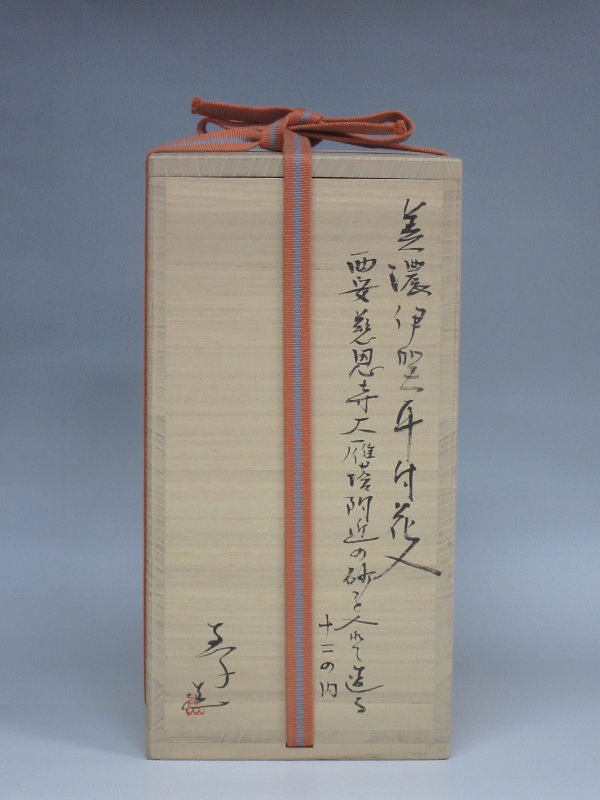 美濃伊賀耳付花入
西安慈恩寺大雁塔附近の砂を入れて造る
十二の内